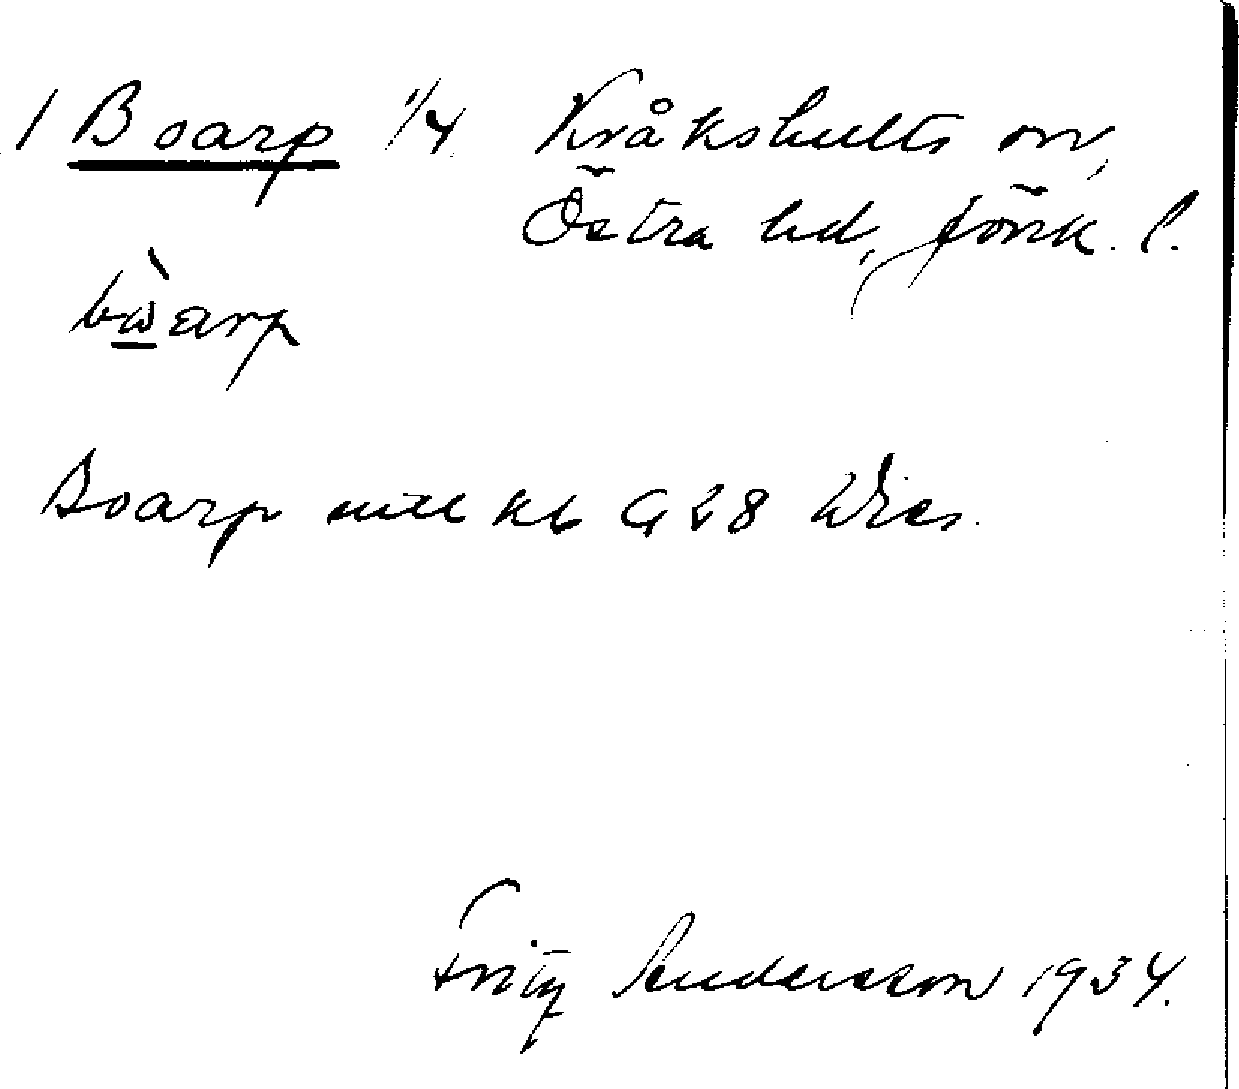 1 Boarp 1/4 Kråkshults sn,
Östra hd, Jönk. l.
bὼarp
Boarp mtl kb G 28 Wies.
Fritz Andersson 1934.